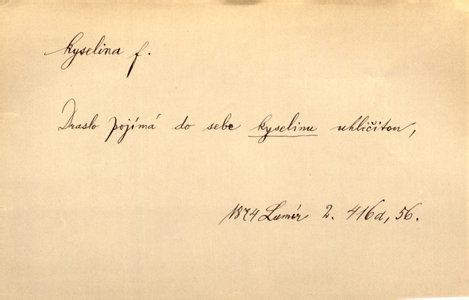 kyselina f.
Draslo pojímá do sebe kyselinu uhličitou,
1874 Lumír 2. 416d, 56.